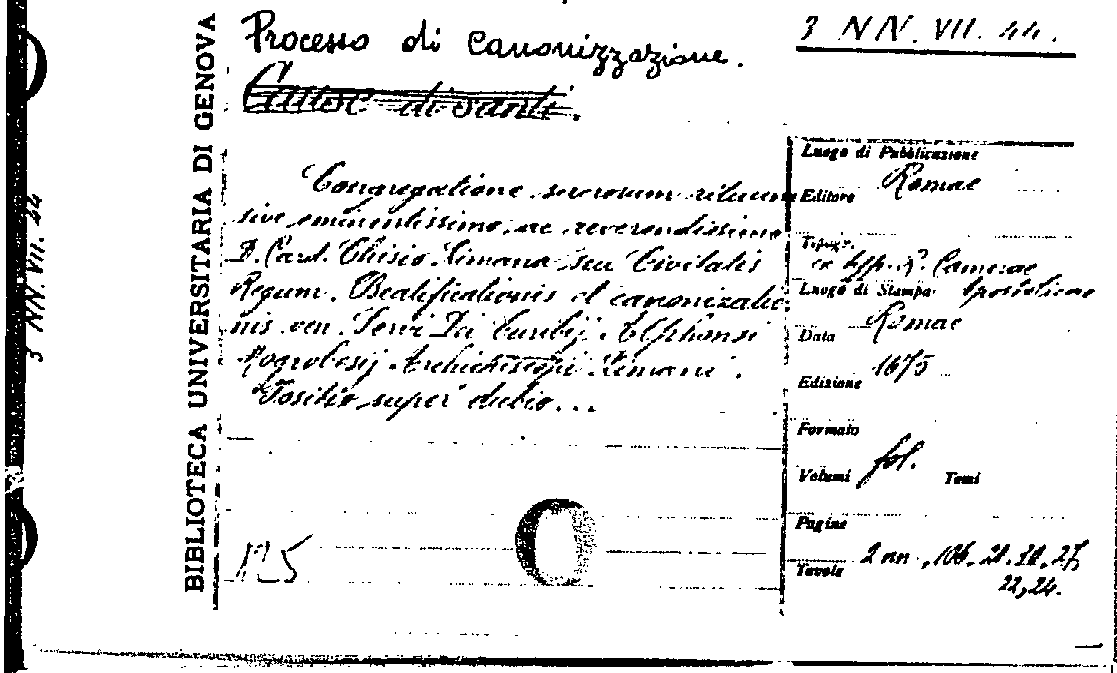 Processo di canonizzazione.
3 NN. VII. 44.
BIBLIOTECA UNIVERSITARIA DI GENOVA
3 NN. VII. 44
Congregatione sacrorum rituum
sive eminentissimo ac reverendissimo
D. Card. Chisio Limana seu Civitatis
Regum. Beatificationis et canonizatio-
nis ven. Servi Dei Turibij Alphonsi
Mogrobesij Archiepiscopi Limani.
Positio super dubio...
125
Luogo di Pubblicazione
Romae
Editore
Tipogr.
ex typ. R. Camerae
Apostolicae
Luogo di Stampa
Romae
Data
1675
Edizione
Formato
fol.
Volumi Tomi
Pagine
2 nn., 106. 20. 30. 27,
22, 24.
Tavole